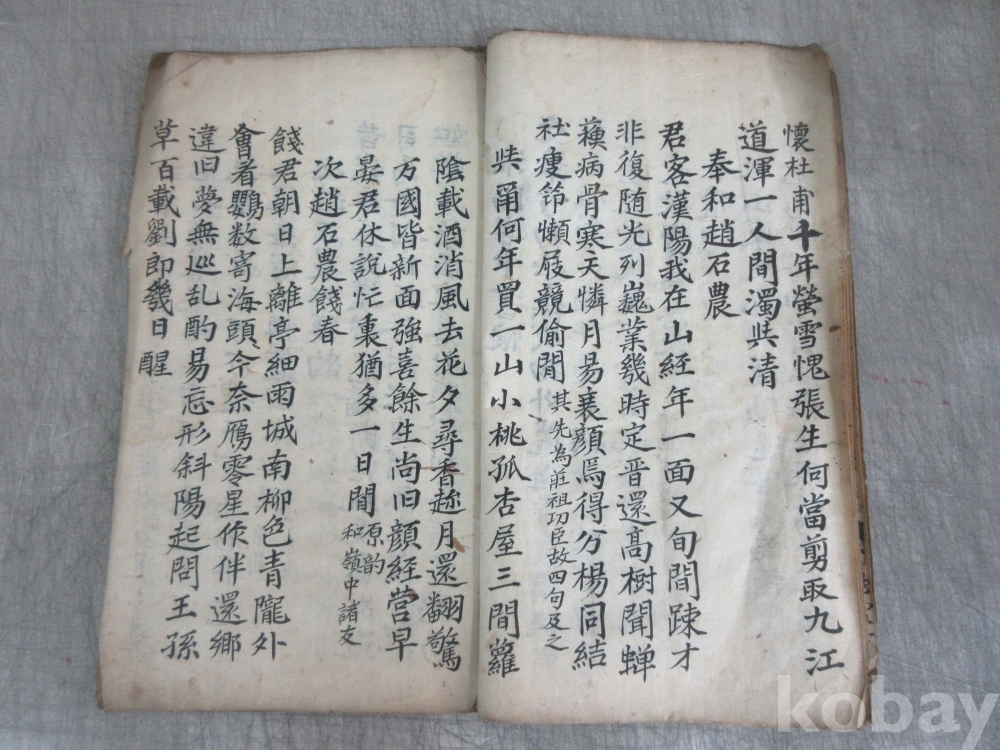 懷杜甫十年螢雪愧張生何當剪取九江
道渾一人間濁與清
奉和趙石農
君客漢陽我在山經年一面又旬間踈才
非復随光列巍業幾時定晋還高樹聞蝉
蘓病骨寒天憐月易衰顔焉得分楊同結
社痩笻懶屐競偷閒其先為莊祖功臣故四句及之
與甭何年買一山小桃孤杏屋三間籮
陰載酒消風去花夕尋香趂月還翻驚
万國皆新面強喜餘生尚旧顔經営早
晏君休說忙裏猶多一日閒原韵和嶺中諸友
次趙石農餞春
餞君朝日上離亭細雨城南柳色青隴外
會看鸚数寄海頭今奈鴈零星作伴還鄉
違旧夢無巡乱酌易忘形斜陽起問王孫
草百載劉郎幾日醒
kobay